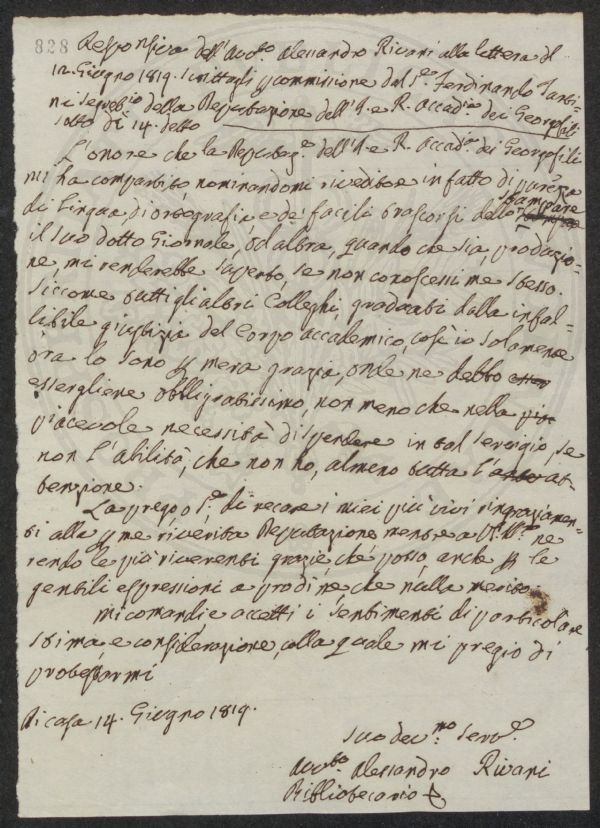 828
Responsiva dell'Avv.to Alessandro Rivani alla lettera del
12. Giugno 1819. scrittagli p commissione dal S.r Ferdinando Tarti-
ni Segret.io della Deputazione dell'I. e R. Accad.ia dei Georgofili
sotto dì 14. detto
L'onore che la Deputaz.e dell'I. e R. Accad.ia dei Georgofili
mi ha compartito nominandomi riveditore in fatto di purezza
di Lingua, di ortografia e de' facili trascorsi dello stampare
il suo dotto Giornale, od altra, quando che sia, produzio-
ne, mi renderebbe superbo, se non conoscessi me stesso.
Siccome tutti gli altri Colleghi, graduati dalla infal-
libile giustizia del Corpo accademico, così io solamente
ora lo sono p mera grazia, onde ne debbo
essergliene obbligatissimo, non meno che nella
piacevole necessità di spendere in tal servigio, se
non l'abilità, che non ho, almeno tutta l'at-
tenzione.
La prego o S.re di recare i miei più vivi ringraziamen-
ti alla p me riverita Deputazione mentre a ne
rendo le più riverenti grazie, che posso, anche p le
gentili espressioni a pro di me, che nulla merito.
Mi comandi e accetti i sentimenti di particolare
stima e considerazione, colla quale mi pregio di
protestarmi
Di casa 14. Giugno 1819.
Suo dev.mo Serv.e
Avv.to Alessandro Rivani
Bibliotecario